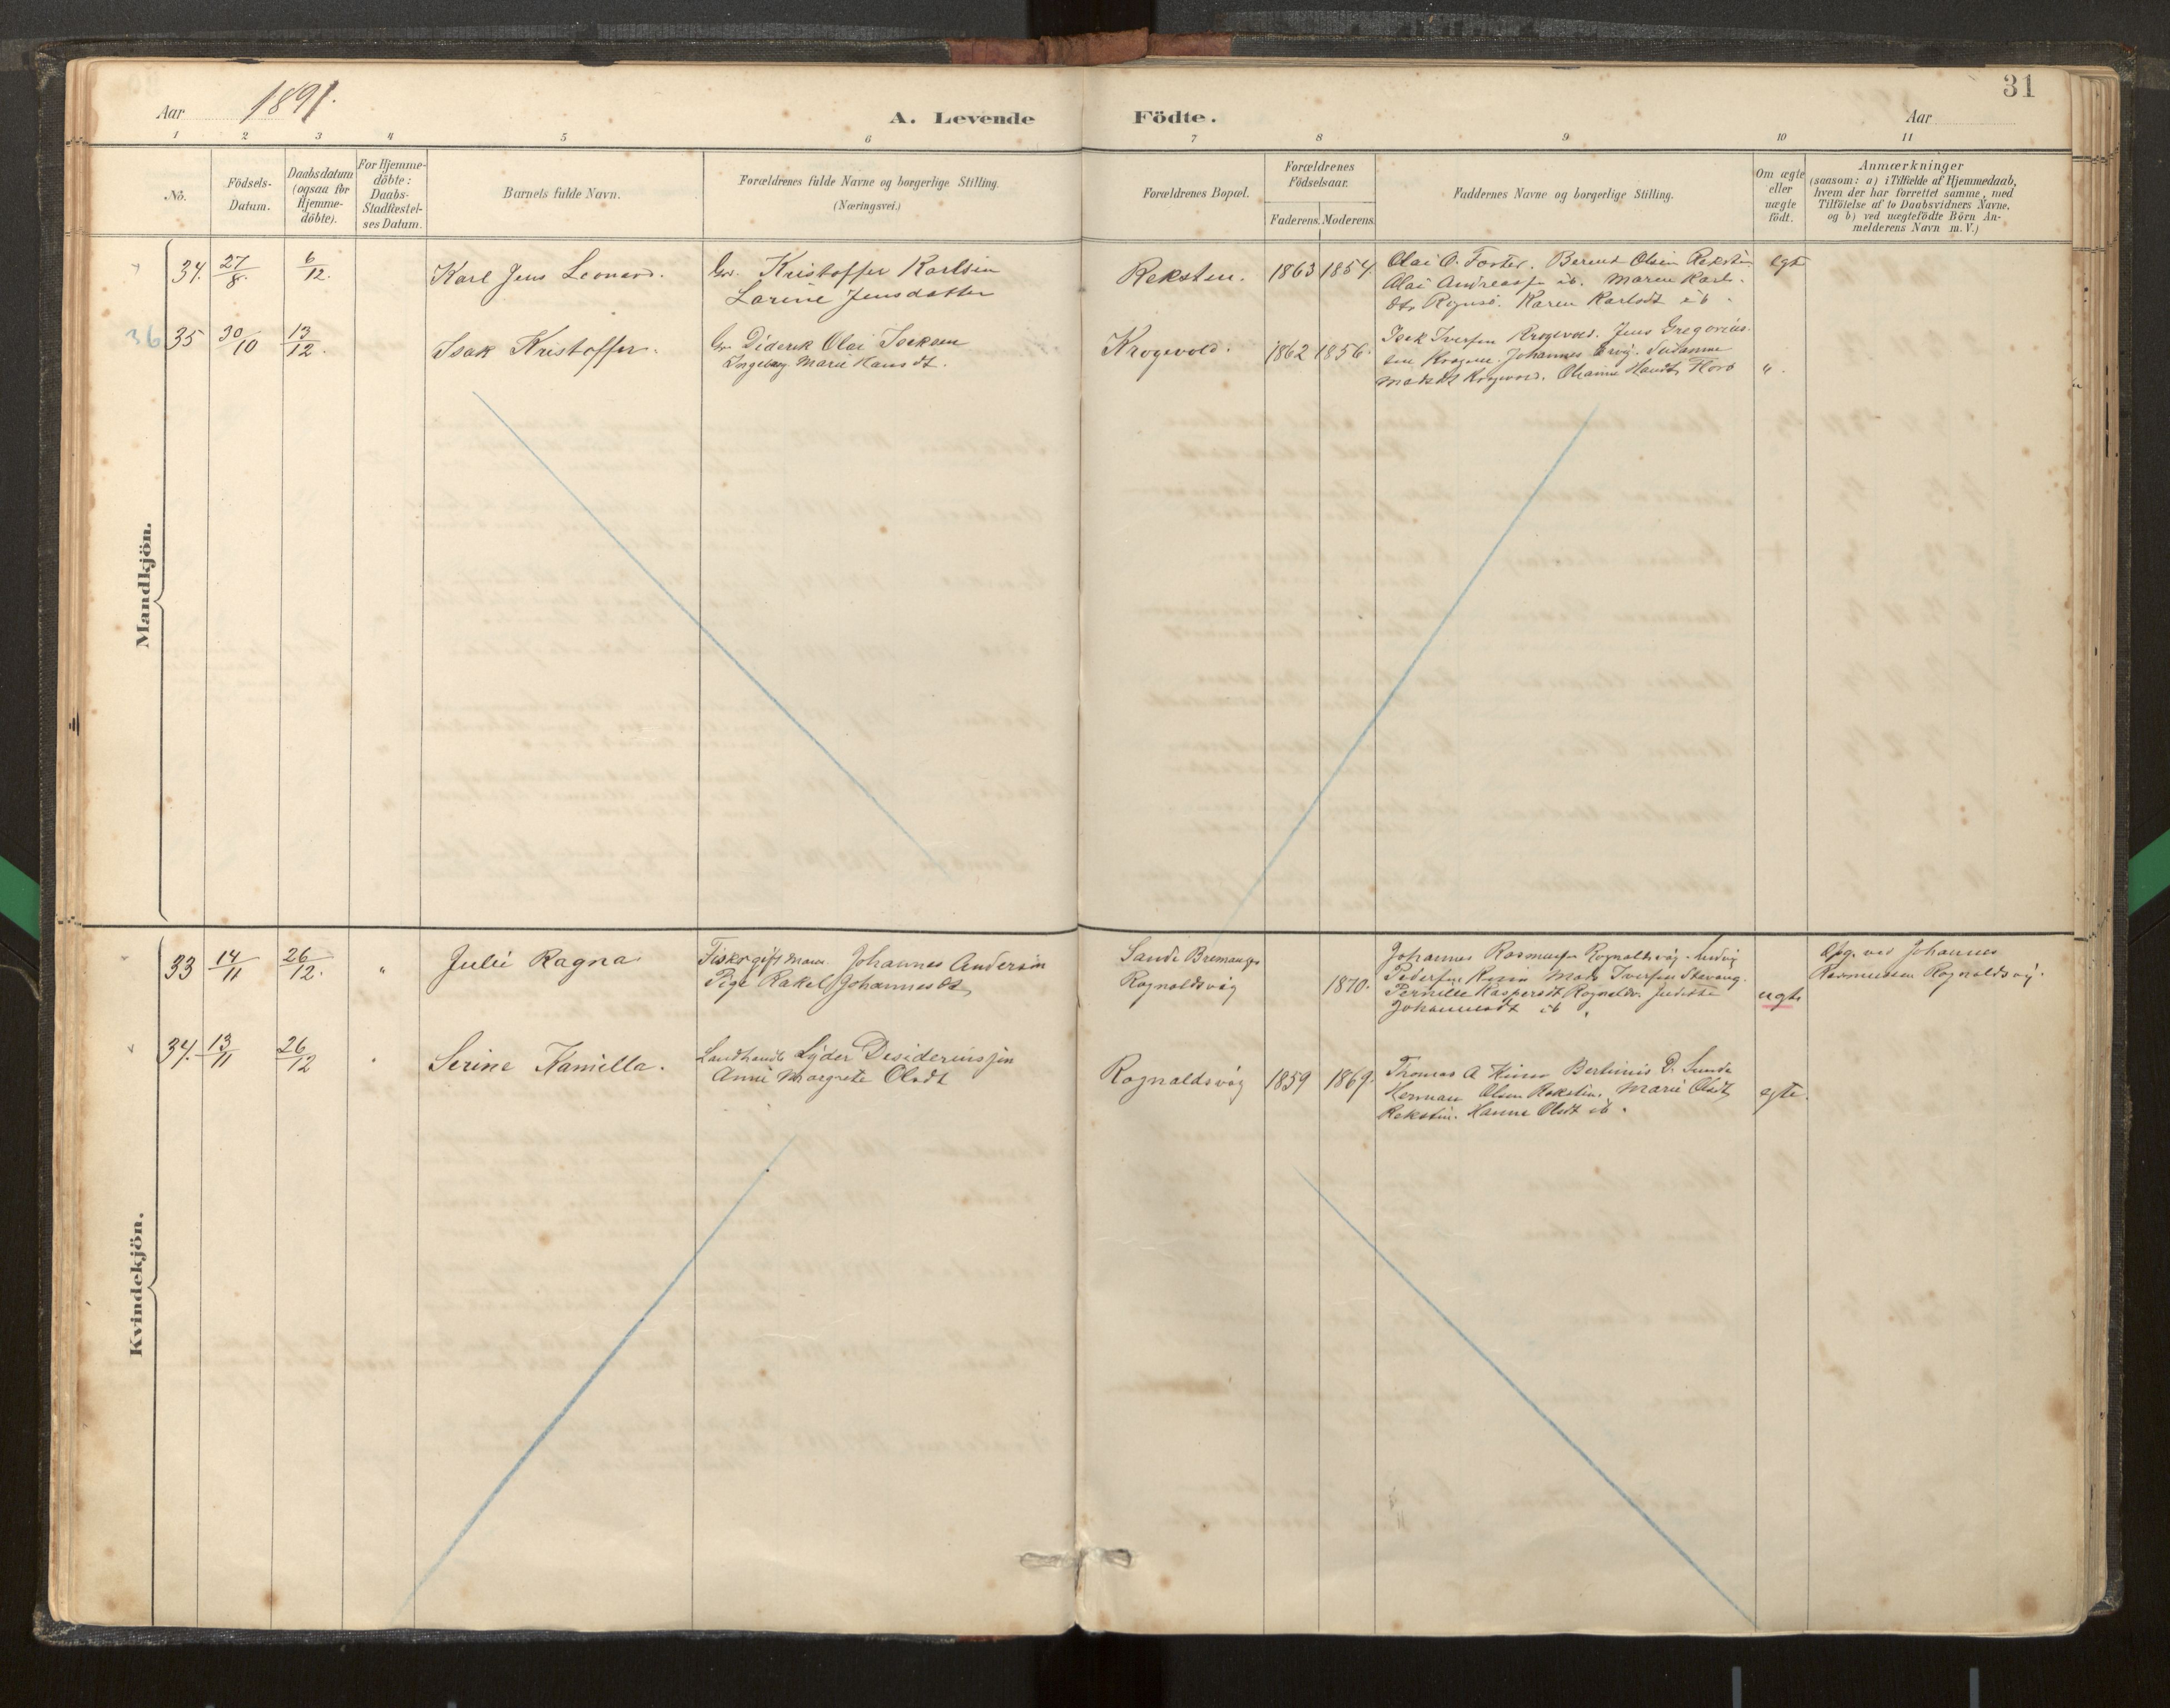 31
Aar 1891.
A. Levende Födte.
Aar
1 2 3 4 5 6 7 8 9 10 11
No.
Födsels-
Datum.
Daabsdatum
(ogsaa for
Hjemme-
döbte).
For Hjemme-
döbte:
Daabs-
Stadfæstel-
ses Datum.
Barnets fulde Navn.
Forældrenes fulde Navne og borgerlige Stilling.
(Næringsvei.)
Forældrenes Bopæl.
Forældrenes
Födselsaar.
Faderens. Moderens.
Faddernes Navne og borgerlige Stilling.
Om ægte
eller
uægte
födt.
Anmærkninger
(saasom: a) i Tilfælde af Hjemmedaab,
hvem der har forrettet samme, med
Tilföielse af to Daabsvidners Navne,
og b) ved uægtefödte Börn An-
melderens Navn m. V.)
Mandkjön.
34. 27/8. 6/12. Karl Jens Leonard.
Gr. Kristoffer Karlsen
Larine Jensdatter
Reksten. 1863 1854.
Olai O. Berent Olsen Reksten
Olai Andreassen ib. Maren Karls-
dtr Rognsö. Karen Karlsdt ib.
egte
36 35 30/10 13/12. Isak Kristoffer.
Gr. Diderik Olai Isaksen
Ingeborg Marie Hansdt.
Krogevold. 1862 1856.
Isak Iversen Krogevold. Jens Gregorius-
sen Johannes Susanne
Madsdt Krogevold. Florö
"
Kvindekjön.
33 14/11 26/12. " Julie Ragna
Fisker gift Mann Johannes Andersen
Pige Rakel Johannesdt
Sande Bremanger
Rognaldsvåg
1870.
Johannes Rasmussen Rognaldsvåg. Ludvig
Pedersen Mads Iversen Stavang.
Pernille Kaspersdt Rognaldsv.
Johannesdt ib.
uegte
Opg. ved Johannes
Rasmussen Rognaldsvåg.
34. 13/11 26/12 " Serine Kamilla.
Landhandl. Lyder Desideriussen
Anne Margrete Olsdt
Rognaldsvåg 1859 1869.
Thomas A Bertinus D. Sunde
Herman Olsen Reksten. Marie Olsdt
Reksten. Hanna Olsdt ib.
egte.